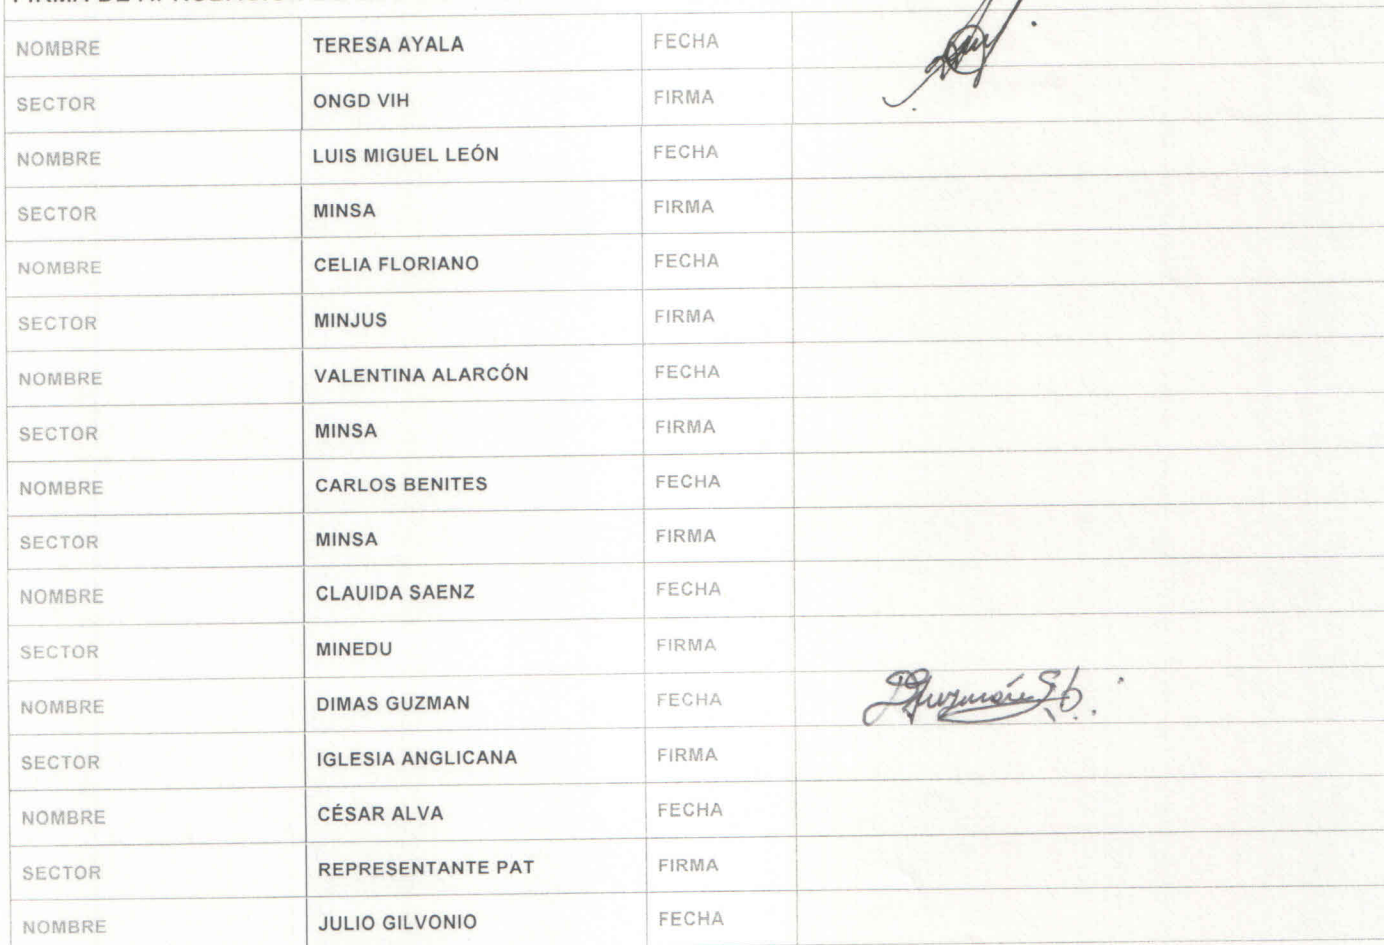 NOMBRE TERESA AYALA FECHA
SECTOR ONGD VIH FIRMA
NOMBRE LUIS MIGUEL LEÓN FECHA
SECTOR MINSA FIRMA
NOMBRE CELIA FLORIANO FECHA
SECTOR MINJUS FIRMA
NOMBRE VALENTINA ALARCÓN FECHA
SECTOR MINSA FIRMA
NOMBRE CARLOS BENITES FECHA
SECTOR MINSA FIRMA
NOMBRE CLAUIDA SAENZ FECHA
SECTOR MINEDU FIRMA
NOMBRE DIMAS GUZMAN FECHA
SECTOR IGLESIA ANGLICANA FIRMA
NOMBRE CÉSAR ALVA FECHA
SECTOR REPRESENTANTE PAT FIRMA
NOMBRE JULIO GILVONIO FECHA